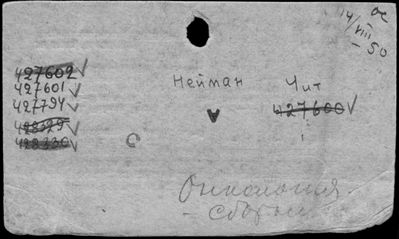 14/VIII – 50
427602 ✓
427601 ✓
427794 ✓
Нейман
Чит
427600 ✓
Онкология
– сборник